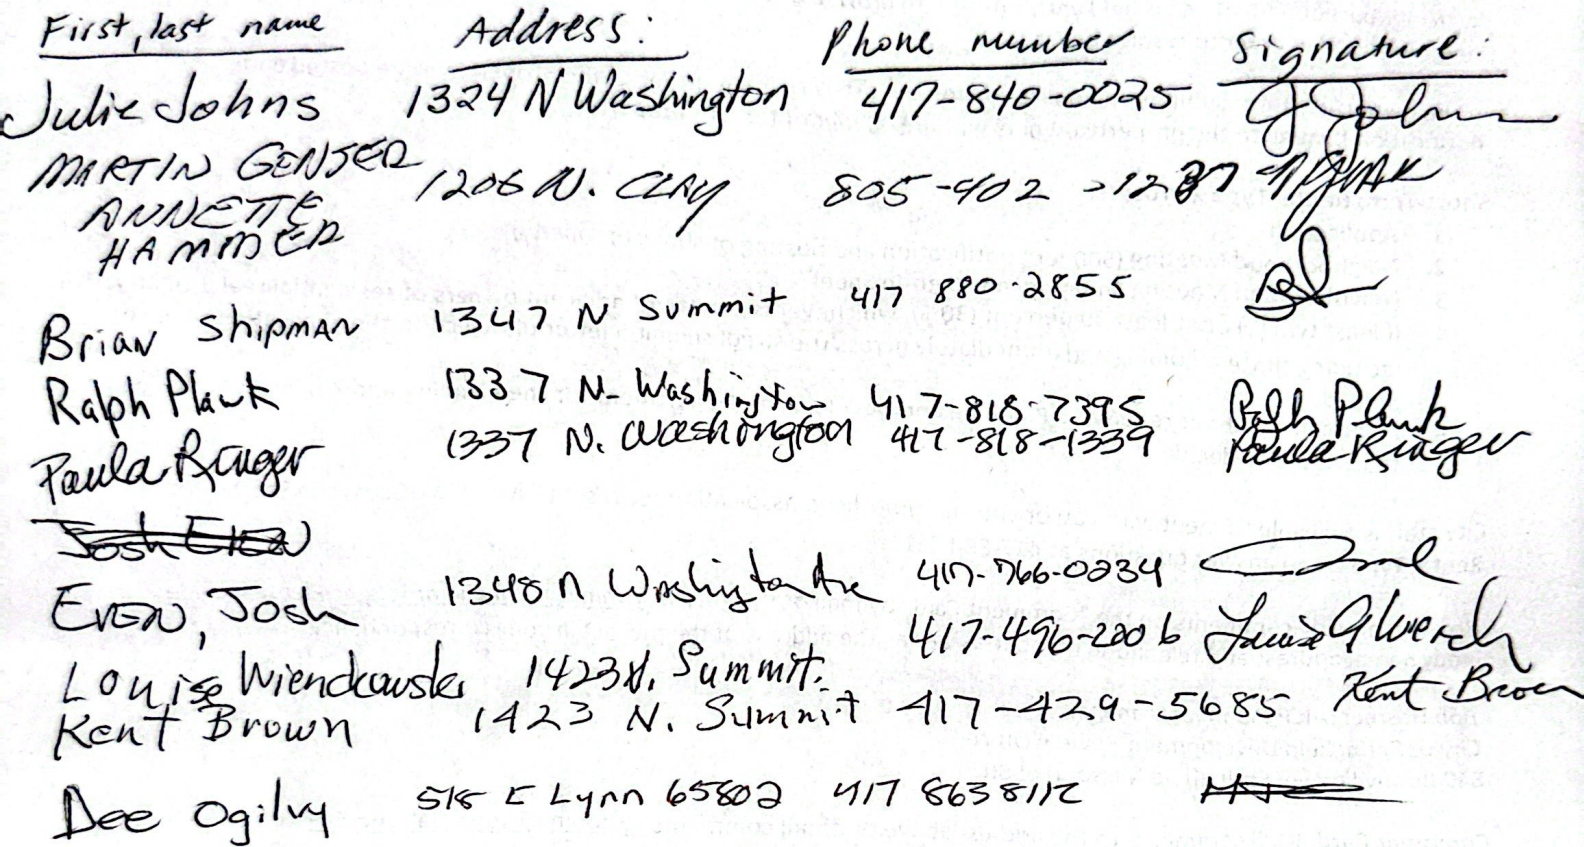 First, last name Address: Phone number Signature:
Julie Johns 1324 N Washington 417-840-0025 J Johns
MARTIN GENSER 1206 N. CLAY 805-402-1237
ANNETTE
HAMMER
Brian Shipman 1347 N Summit 417 880-2855
Ralph Plank 1337 N. Washington 417-818-7395 Ralph Plank
Paula Ringer 1337 N. Washington 417-818-1339 Paula Ringer
Josh Even
Even, Josh 1348 N Washington Ave 417-766-0234
Louise Wienckowski 1423 N. Summit. 417-496-2006 Louise
Kent Brown 1423 N. Summit 417-429-5685 Kent Brown
Dee Ogilvy 518 E Lynn 65802 417 863 8112